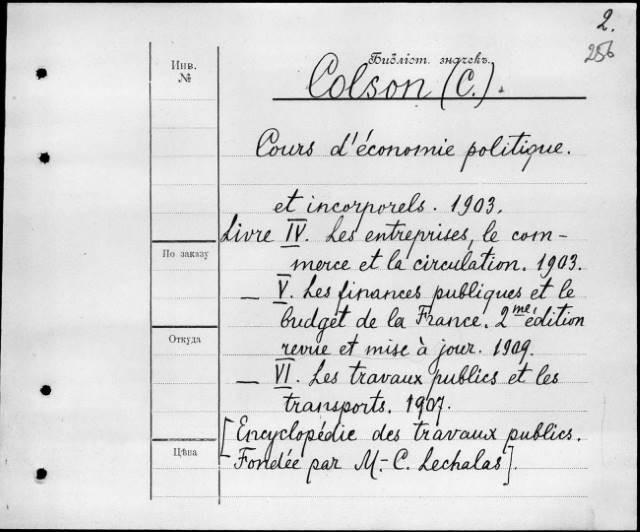 2.
256
Инв.
№
Библіот. значекъ
Colson (C.).
Cours d'économie politique.
et incorporels. 1903.
Livre IV. Les entreprises, le com-
merce et la circulation. 1903.
По заказу
— V. Les finances publiques et le
budget de la France. 2me édition
revue et mise à jour. 1909.
Откуда
— VI. Les travaux publics et les
transports. 1907.
[Encyclopédie des travaux publics.
Fondée par M.-C. Lechalas].
Цѣна